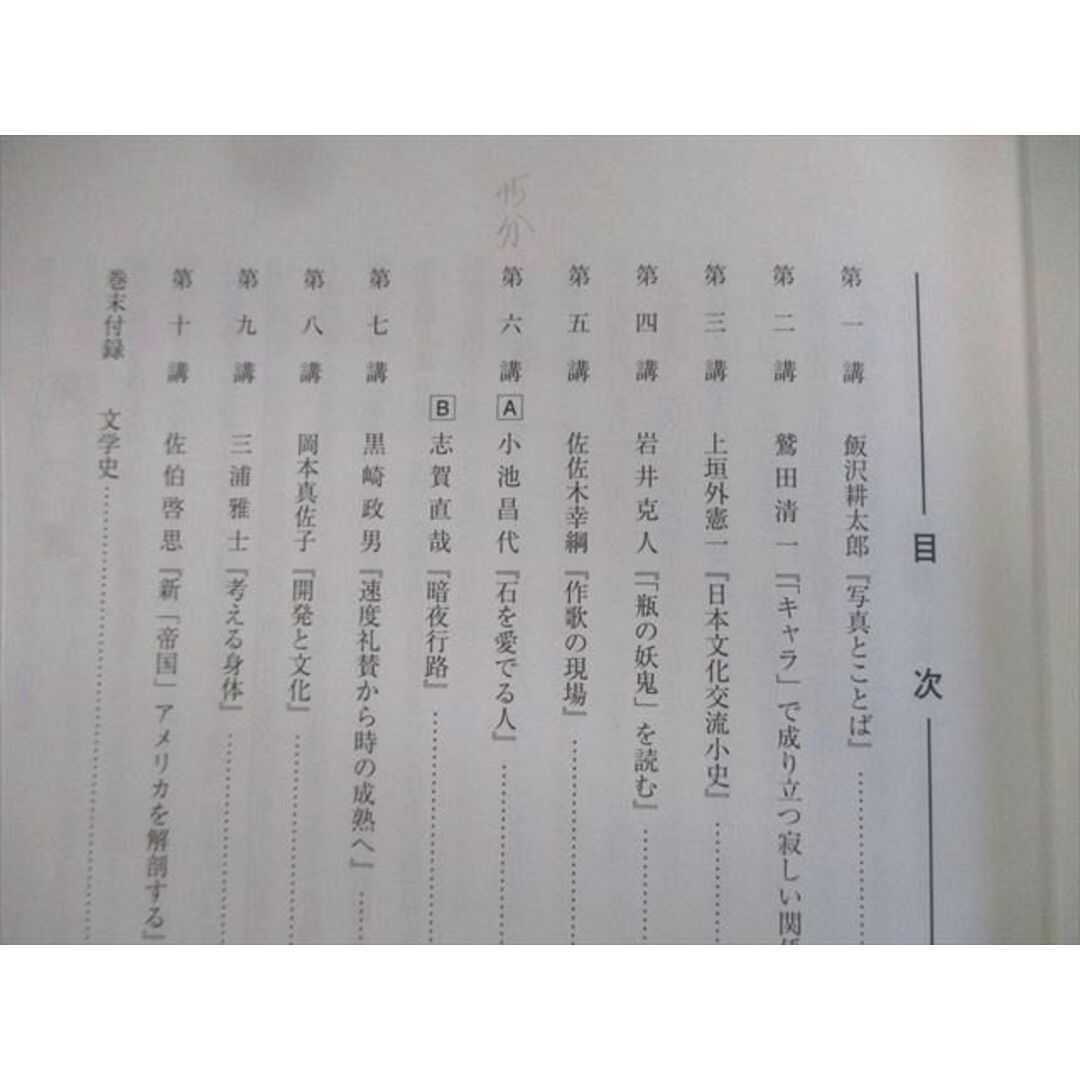 目次
第一講 飯沢耕太郎『写真とことば』
第二講 鷲田清一『「キャラ」で成り立つ寂しい関係
第三講 上垣外憲一『日本文化交流小史』
第四講 岩井克人『「瓶の妖鬼」を読む』
第五講 佐佐木幸綱『作歌の現場』
第六講 A 小池昌代『石を愛でる人』
B 志賀直哉『暗夜行路』
第七講 黒崎政男『速度礼賛から時の成熟へ』
第八講 岡本真佐子『開発と文化』
第九講 三浦雅士『考える身体』
第十講 佐伯啓思『新「帝国」アメリカを解剖する』
巻末付録 文学史
分